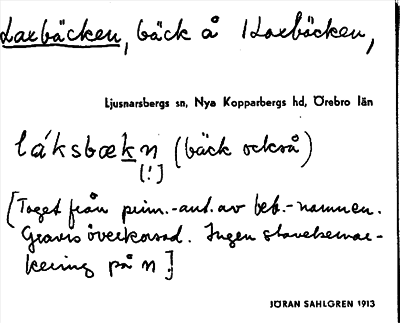 Laxbäcken, bäck å Laxbäcken,
Ljusnarsbergs sn, Nya Kopparbergs hd, Örebro län
láksbækn (bäck också)
[!]
[Taget från prim.-ant. av beb.-namnen.
Gravis överkorsad. Ingen stavelsemar-
kering på n.]
JÖRAN SAHLGREN 1913